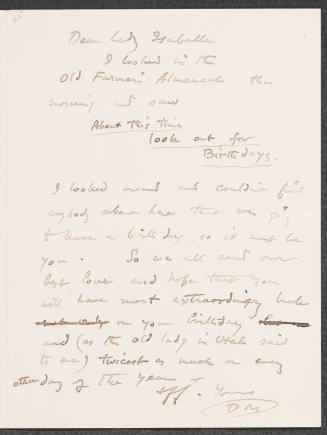 Dear Lady Isabella
I looked in the
Old Farmer's Almanack this
morning and saw
About this time
look out for
Birthdays.
I looked around and couldn't find
anybody about here that was going
to have a birthday, so it must be
you. So we all send our
best love and hope that you
will have most extraordinary luck
on your birthday
and (as the old lady in Utah said
to me) twicest as much on every
other day of the year.
Yours